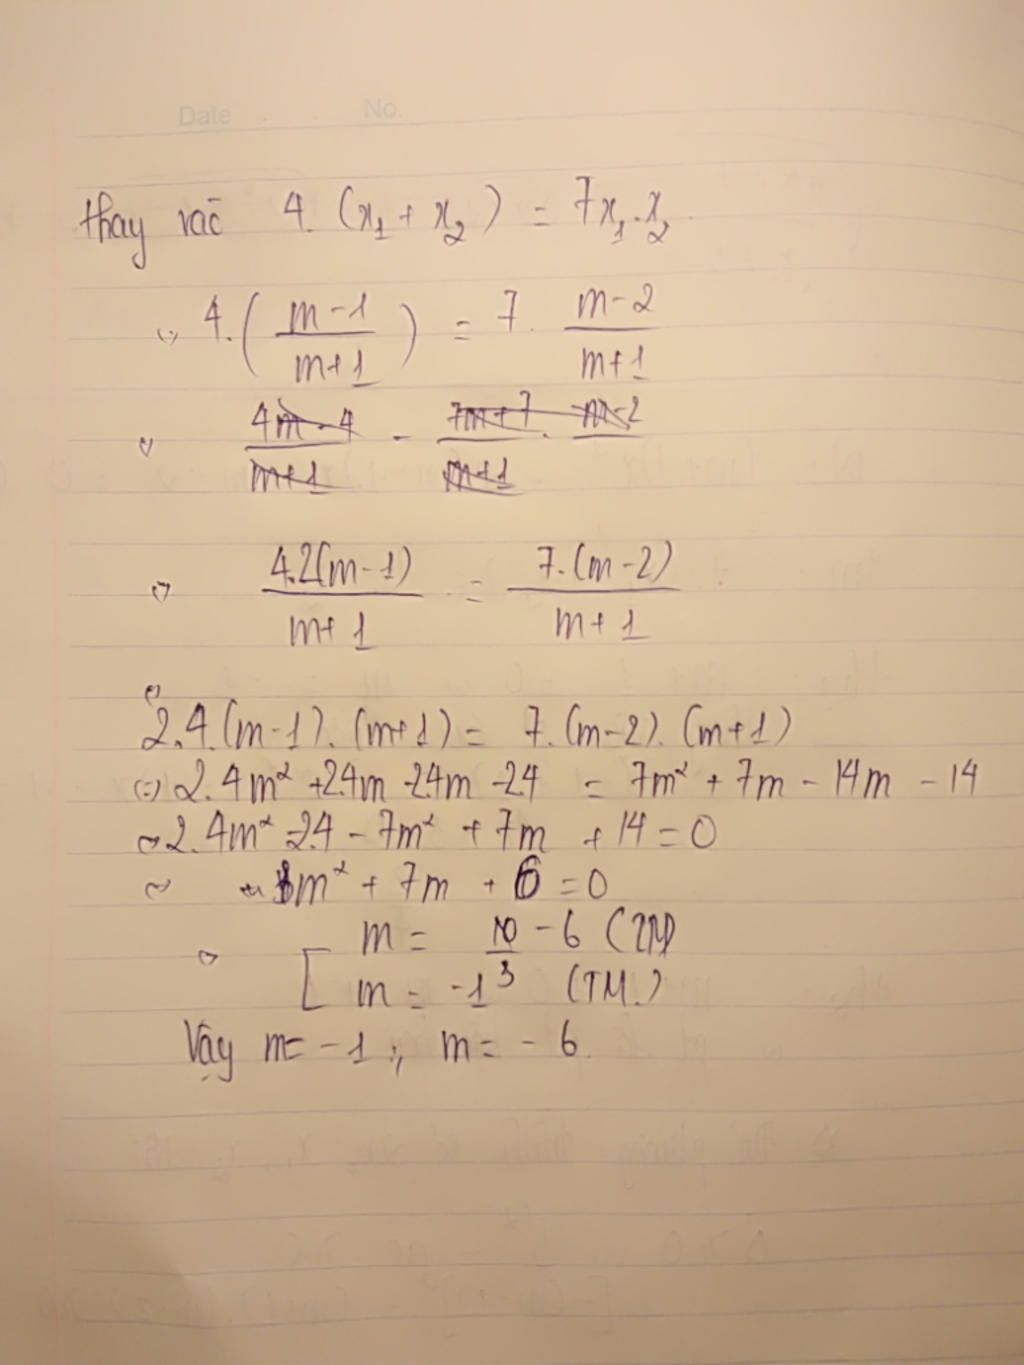 Date No.
thay vào 4. (x₁ + x₂) = 7x₁.x₂
⇔ 4. ( m-1 / m+1 ) = 7. m-2 / m+1
⇔ 4m-4 / m+1 - 7m+7 / m+1 . m-2
⇔ 4.2(m-1) / m+1 = 7.(m-2) / m+1
⇔
2.4.(m-1).(m+1) = 7.(m-2).(m+1)
⇔ 2.4m² +2.4m -2.4m -2.4 = 7m² + 7m - 14m - 14
⇔ 2.4m² -2.4 - 7m² + 7m + 14 = 0
⇔ m² + 7m + 6 = 0
⇔ [ m = - 6 (TM)
m = -1 (TM.)
Vậy m = -1 ; m = - 6.